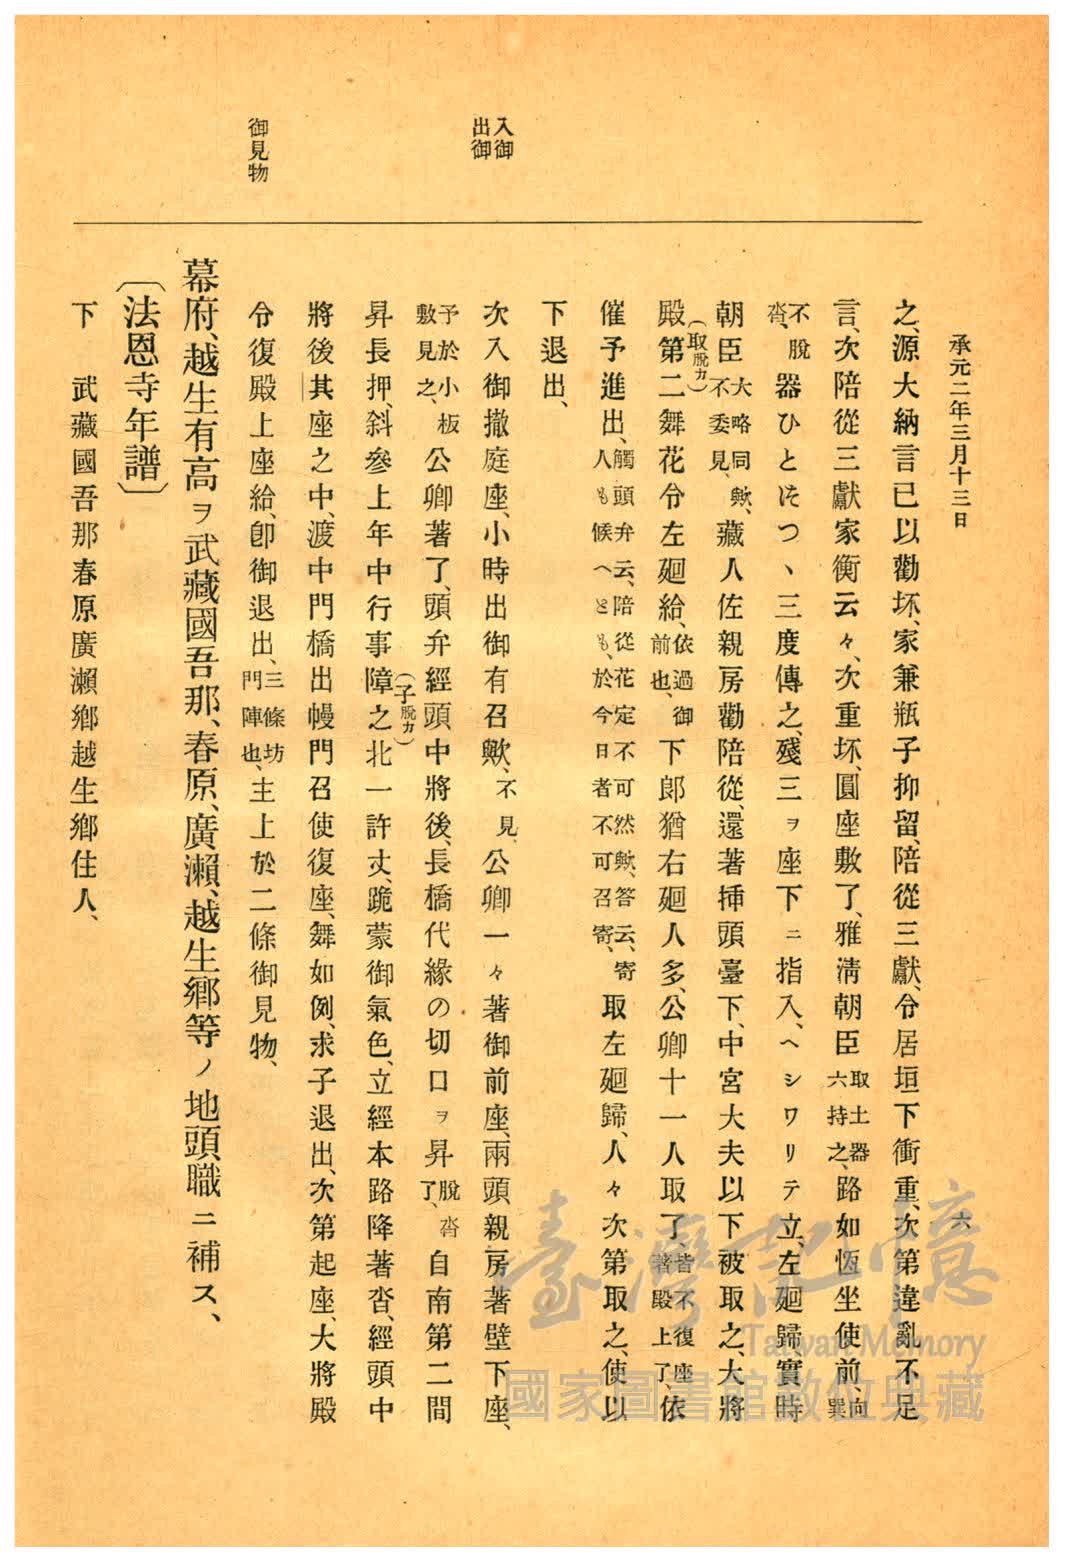 承元二年三月十三日
六
之、源大納言已以勸坏、家兼瓶子抑留、陪從三獻、令居垣下衝重、次第違亂不足
言、次陪從三獻家衡云々、次重坏、圓座敷了、雅淸朝臣取土器六持之、路如恆坐使前、向巽
不脫沓、器ひとにつゝ三度傳之、殘三ヲ座下ニ指入、ヘシワリテ立、左廻歸、實時
朝臣大略同歟、不委見、藏人佐親房勸陪從、還著揷頭臺下、中宮大夫以下被取之、大將
殿第二舞花令左廻給、依過御前也、下郎猶右廻人多、公卿十一人取了、皆不復座著殿上了、依
(取脫カ)
催予進出、觸頭弁云、陪從花定不可然歟、答云、寄人も候へとも、於今日者不可召寄、取左廻歸、人々次第取之、使以
下退出、
入御
出御
次入御撤庭座、小時出御有召歟、不見、公卿一々著御前座、兩頭、親房著壁下座、
予於小板敷見之、公卿著了、頭弁經頭中將後、長橋代緣の切口ヲ昇脫沓了、自南第二間
昇長押、斜參上年中行事障之北一許丈、跪蒙御氣色、立經本路降著沓、經頭中
(子脫カ)
將後其座之中、渡中門橋出幔門召使復座、舞如例、求子退出、次第起座、大將殿
御見物
令復殿上座給、卽御退出、三條坊門陣也、主上於二條御見物、
幕府、越生有高ヲ武藏國吾那、春原、廣瀨、越生鄕等ノ地頭職ニ補ス、
〔法恩寺年譜〕
下　武藏國吾那春原廣瀨鄕越生鄕住人、
臺灣記憶
Taiwan Memory
國家圖書館數位典藏